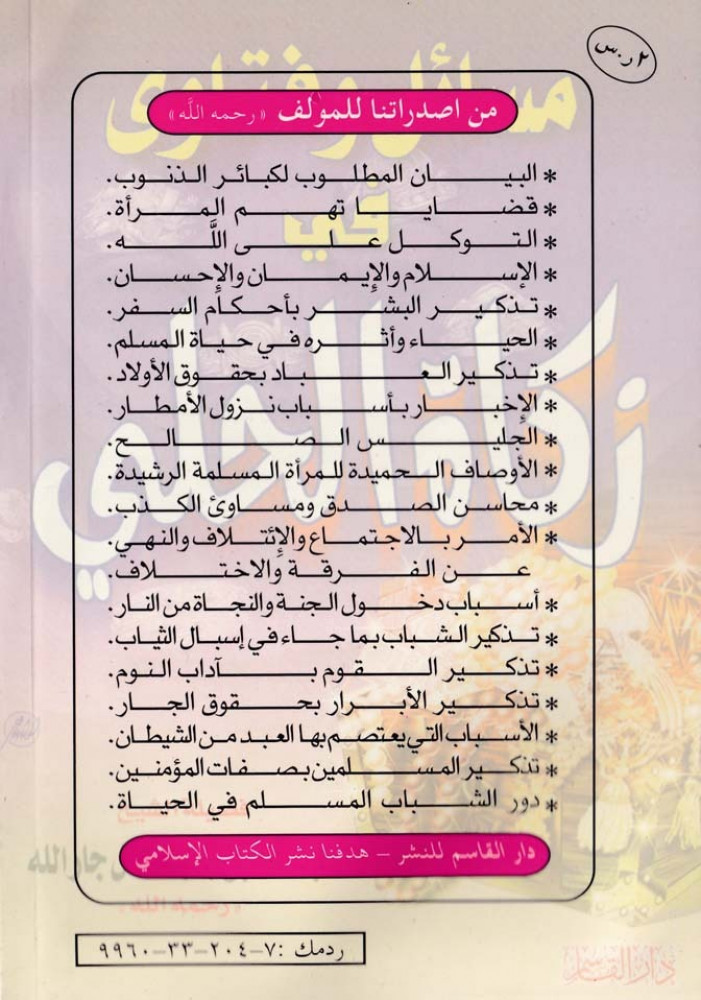 ٢ ر.س
من اصدراتنا للمؤلف « رحمه اللَّه »
* البيان المطلوب لكبائر الذنوب.
* قضايا تهم المرأة.
* التوكل على اللَّه.
* الإسلام والإيمان والإحسان.
* تذكير البشر بأحكام السفر.
* الحياء وأثره في حياة المسلم.
* تذكير العباد بحقوق الأولاد.
* الإخبار بأسباب نزول الأمطار.
* الجليس الصالح.
* الأوصاف الحميدة للمرأة المسلمة الرشيدة.
* محاسن الصدق ومساوئ الكذب.
* الأمر بالاجتماع والإئتلاف والنهي.
عن الفرقة والاختلاف.
* أسباب دخول الجنة والنجاة من النار.
* تذكير الشباب بما جاء في إسبال الثياب.
* تذكير القوم بآداب النوم.
* تذكير الأبرار بحقوق الجار.
* الأسباب التي يعتصم بها العبد من الشيطان.
* تذكير المسلمين بصفات المؤمنين.
* دور الشباب المسلم في الحياة.
دار القاسم للنشر – هدفنا نشر الكتاب الإسلامي
ردمك :٧-٢٠٤-٣٣-٩٩٦٠
مسائل وفتاوى
في
زكاة الحلي
جار الله
«رحمه الله»
دار القاسم